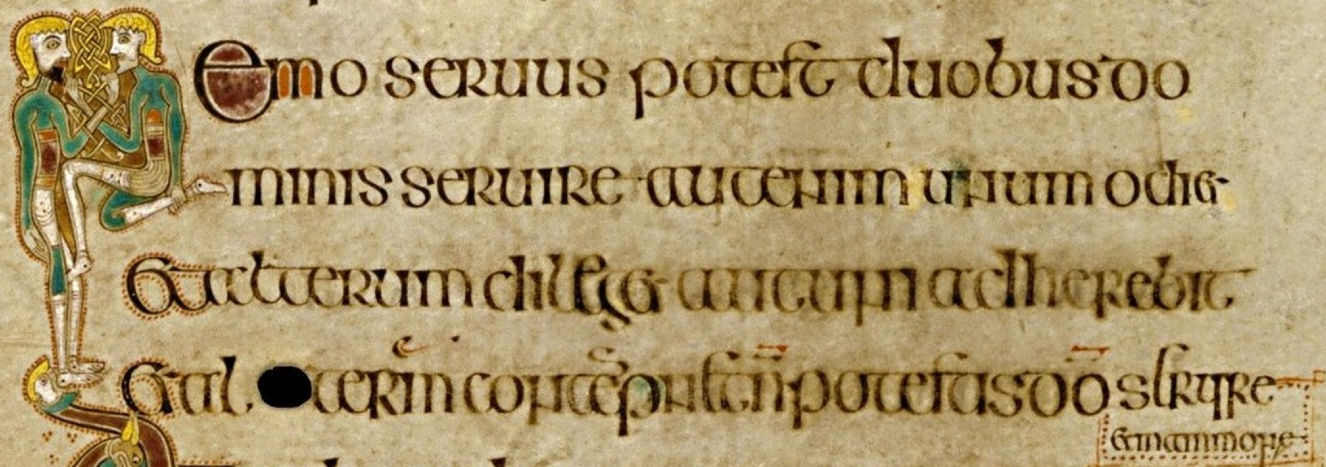 Nemo seruus potest duobus do
minis seruire aut enim unum odi&
&alterum dilig& aut uni adherebit
&al terum contēpn& n̄ potestis dō seruire
&mammone